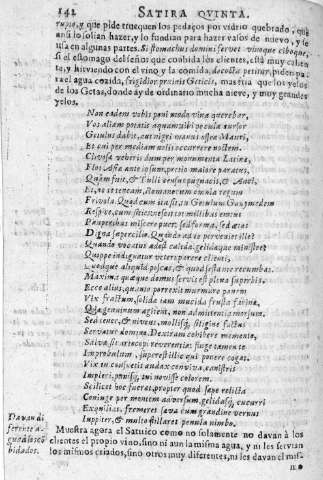 142 SATIRA QVINTA.
rupto, y que pide truequen los pedaços por vidrio quebrado, que
aun lo solian hazer, y lo fundian para hazer vasos de nuevo, y se
usa en algunas partes. Si stomachus domini fervet vinoque ciboque,
si el estomago del señor que combida los clientes, está muy calien
te, y hirviendo con el vino y la comida, decocta petitur, piden pa
ra el agua cozida, frigidior pruinis Geticis, mas fria que los yelos
de los Getas, donde ay de ordinario mucha nieve, y muy grandes
yelos.
Non eadem vobis poni modo vina querebar,
Vos aliam potatis aquam, tibi pocula cursor
Getulus dabit, aut nigri manus ossea Mauri,
Et cui per mediam nolis occurrere noctem,
Clivosæ veheris dum per monumenta Latinæ,
Flos Asiæ ante ipsum, pretio maiore paratus,
Quàm fuit, & Tulli census pugnacis, & Anci,
Et, ne te teneam, Romanorum omnia regum
Frivola. Quod cum ita sit, tu Getulum Ganymedem
Respice, cum sities, nescit tot millibus emtus
Pauperibus miscere puer: sed forma, sed ætas
Digna supercilio. Quando ad te pervenit ille?
Quando vocatus adest calidæ, gelidæque minister?
Quippe indignatur veteri parere clienti,
Quodque aliquid poscas, & quod se stante recumbas.
Maxima quæque domus servis est plena superbis.
Ecce alius, quanto porrexit murmure panem
Vix fractum, solidæ iam mucida frusta farinæ,
Quæ genuinum agitent, non admittentia morsum.
Sed tener, & niveus, mollique siligine factus
Servatur domino. Dextram cohibere memento,
Salva sit artocopi reverentia: finge tamen te
Improbulum, superest illic qui ponere cogat.
Vix tu consuetis audax conviva canistris
Impleri, panisque tui novisse colorem.
Scilicet hoc fuerat, propter quod sæpe relicta
Coniuge per montem adversum, gelidasque cucurri
Exquilias, fremeret sæva cum grandine vernus
Iuppiter, & multo stillaret penula nimbo.
Davan di
ferente a-
gua á los cõ
bidados.
Muestra agora el Satirico como no solamente no davan à los
clientes el propio vino, sino ni aun la misma agua, y ni les servian
los mismos criados, sino otros muy diferentes, ni les davan el mis-